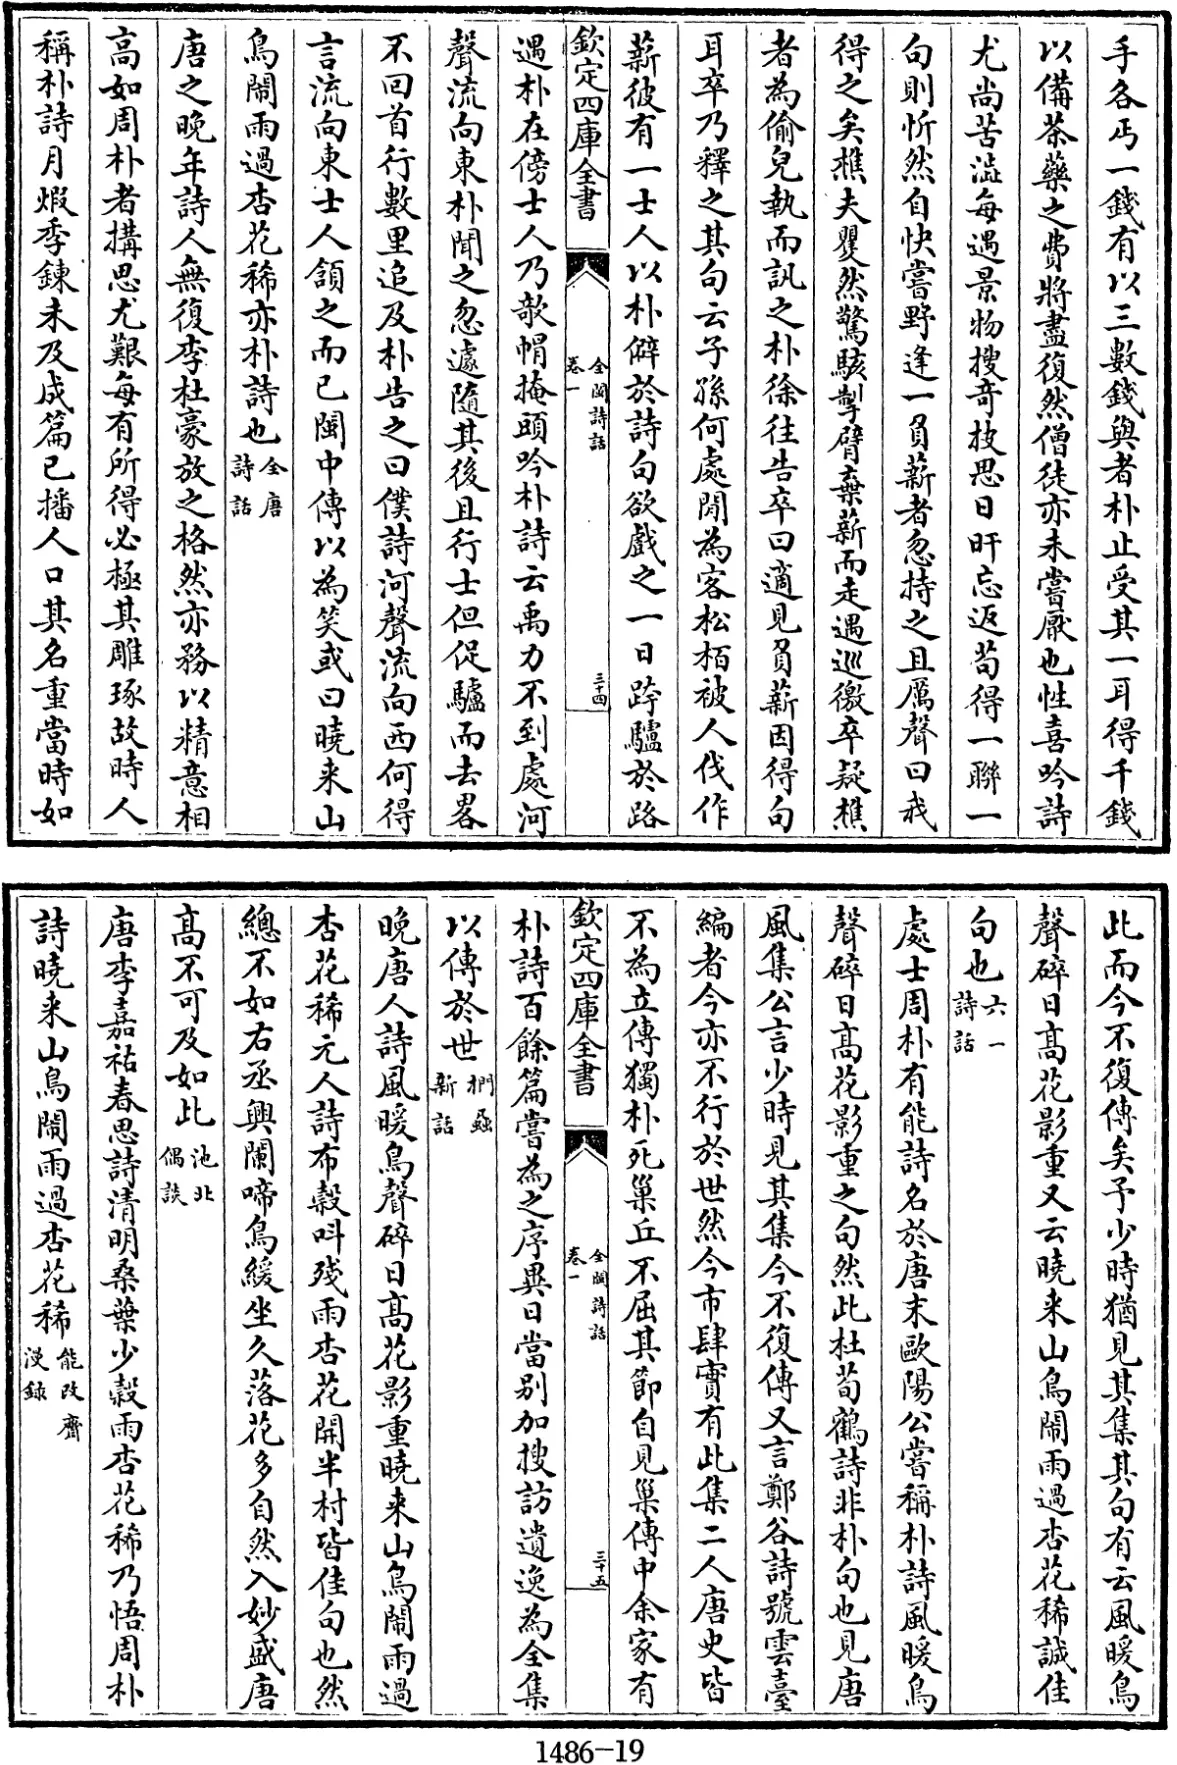 手各丐一錢有以三數錢與者朴止受其一耳得千錢
以備茶藥之費將盡復然僧徒亦未嘗厭也性喜吟詩
尤尚苦澁每遇景物搜奇抉思日旰忘返茍得一聯一
句則忻然自快嘗野逢一負薪者忽持之且厲聲曰我
得之矣樵夫矍然驚駭掣臂棄薪而走遇巡徼卒疑樵
者為偷兒執而訊之朴徐往告卒曰適見負薪因得句
耳卒乃釋之其句云子孫何處閒為客松栢被人伐作
薪彼有一士人以朴僻於詩句欲戲之一日跨驢於路
欽定四庫全書
全閩詩話
卷一
三十四
遇朴在傍士人乃欹帽掩頭吟朴詩云禹力不到處河
聲流向東朴聞之忽遽隨其後且行士但促驢而去畧
不回首行數里追及朴告之曰僕詩河聲流向西何得
言流向東士人頷之而已閩中傳以為笑或曰曉来山
鳥鬧雨過杏花稀亦朴詩也全唐詩話
唐之晚年詩人無復李杜豪放之格然亦務以精意相
高如周朴者搆思尤艱每有所得必極其雕琢故時人
稱朴詩月煅季鍊未及成篇已播人口其名重當時如
此而今不復傳矣予少時猶見其集其句有云風暖鳥
聲碎日髙花影重又云曉来山鳥鬧雨過杏花稀誠佳
句也六一詩話
處士周朴有能詩名於唐末歐陽公嘗稱朴詩風暖鳥
聲碎日髙花影重之句然此杜荀鶴詩非朴句也見唐
風集公言少時見其集今不復傳又言鄭谷詩號雲臺
編者今亦不行於世然今市肆實有此集二人唐史皆
不為立傳獨朴死巢丘不屈其節自見巢傳中余家有
欽定四庫全書
全閩詩話
卷一
三十五
朴詩百餘篇嘗為之序異日當别加搜訪遺逸為全集
以傳於世捫蝨新話
晚唐人詩風暖鳥聲碎日髙花影重曉来山鳥鬧雨過
杏花稀元人詩布穀叫殘雨杏花開半村皆佳句也然
總不如右丞興闌啼鳥緩坐久落花多自然入妙盛唐
髙不可及如此池北偶談
唐李嘉祐春思詩清明桑葉少穀雨杏花稀乃悟周朴
詩曉来山鳥鬧雨過杏花稀能改齋漫録
1486-19